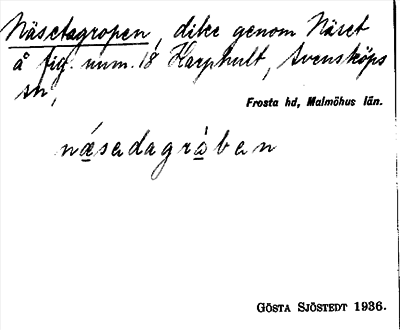 Näsetagropen, dike genom Näset
å fig. num. 18 Karphult, Svensköps
sn,
Frosta hd, Malmöhus län.
næsadagràban
GÖSTA SJÖSTEDT 1936.